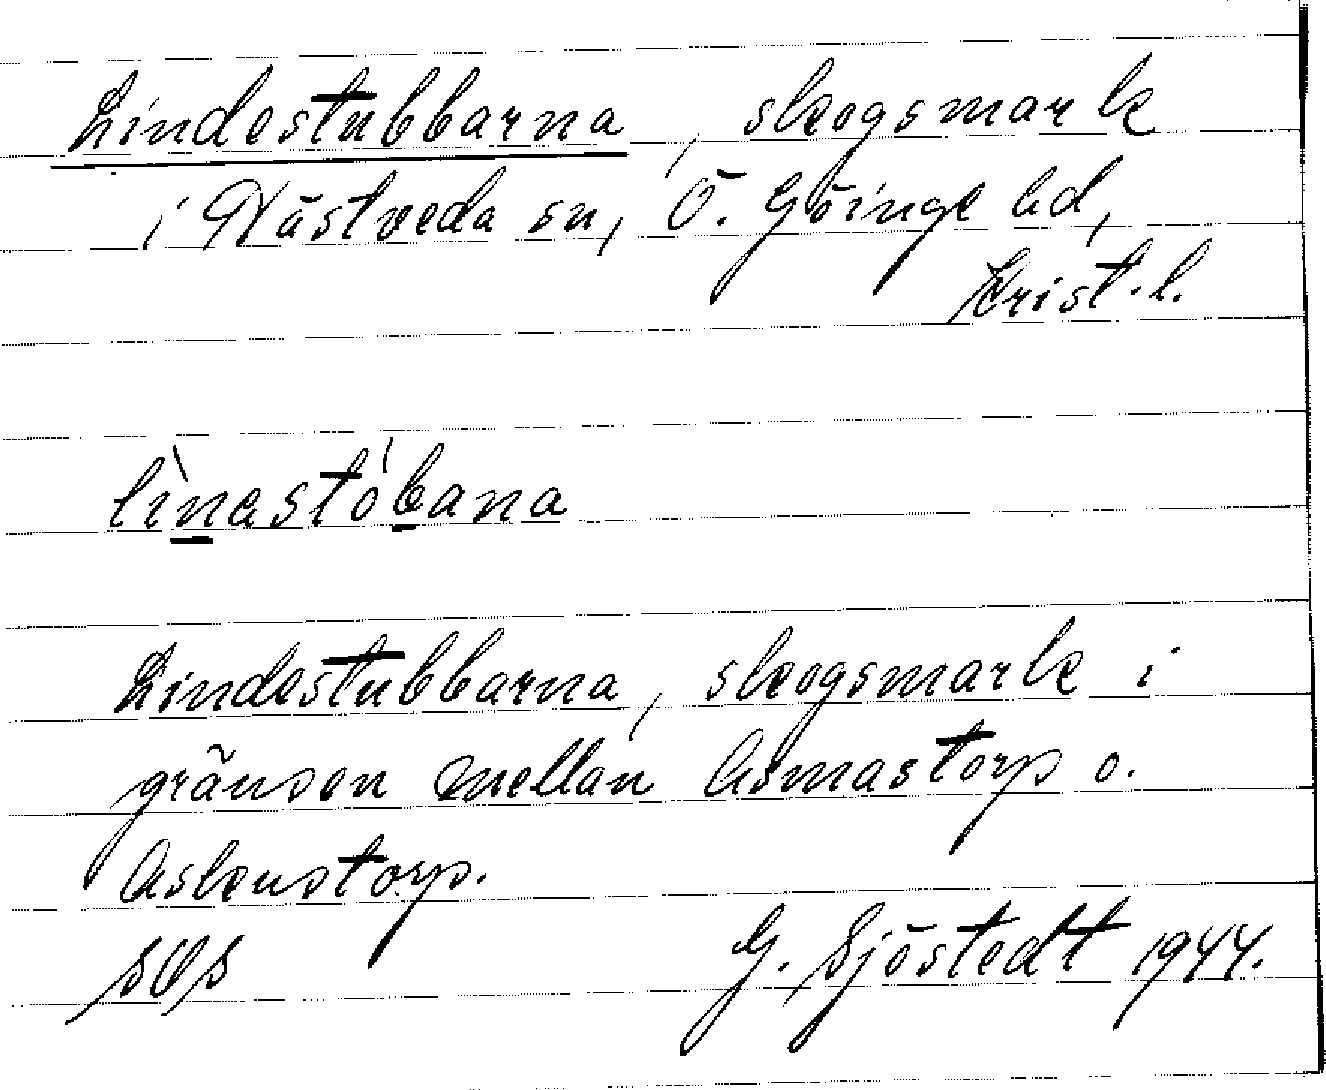 Lindestubbarna, skogsmark
i Västveda sn, Ö. Göinge hd,
Krist. l.
lìnastó̱bana
Lindestubbarna, skogsmark i
gränsen mellan Asmastorp o.
Askenstorp.
G. Sjöstedt 1944.